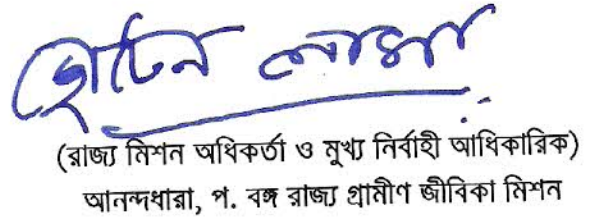 ছোটেন লামা
(রাজ্য মিশন অধিকর্তা ও মুখ্য নির্বাহী আধিকারিক)
আনন্দধারা, প. বঙ্গ রাজ্য গ্রামীণ জীবিকা মিশন